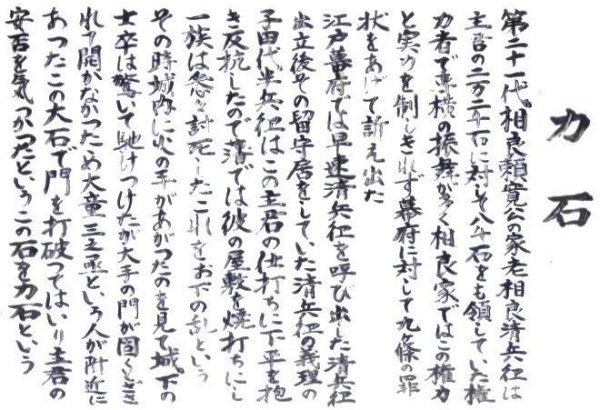 力石
第二十一代相良頼寛公の家老相良清兵衛は
主君の二万二千石に対しその八千石をも領していた権
力者で専横の振舞が多く相良家ではこの権力
と実力を制しきれず幕府に対して九條の罪
状をあげて訴え出た
江戸幕府では早速清兵衛を呼び出した清兵衛
出立後その留守居をしていた清兵衛の義理の
子田代半兵衛はこの主君の仕打ちに不平を抱
き反抗したので藩では彼の屋敷を焼打ちにし
一族は悉く討死したこれをお下の乱という
その時城内に火の手があがつたのを見て城下の
士卒は驚いて馳けつけたが大手の門が固くとざさ
れて開かなかつたため大童三之丞という人が附近に
あつたこの大石で門を打破つてはいり主君の
安否を気づかつたというこの石を力石という